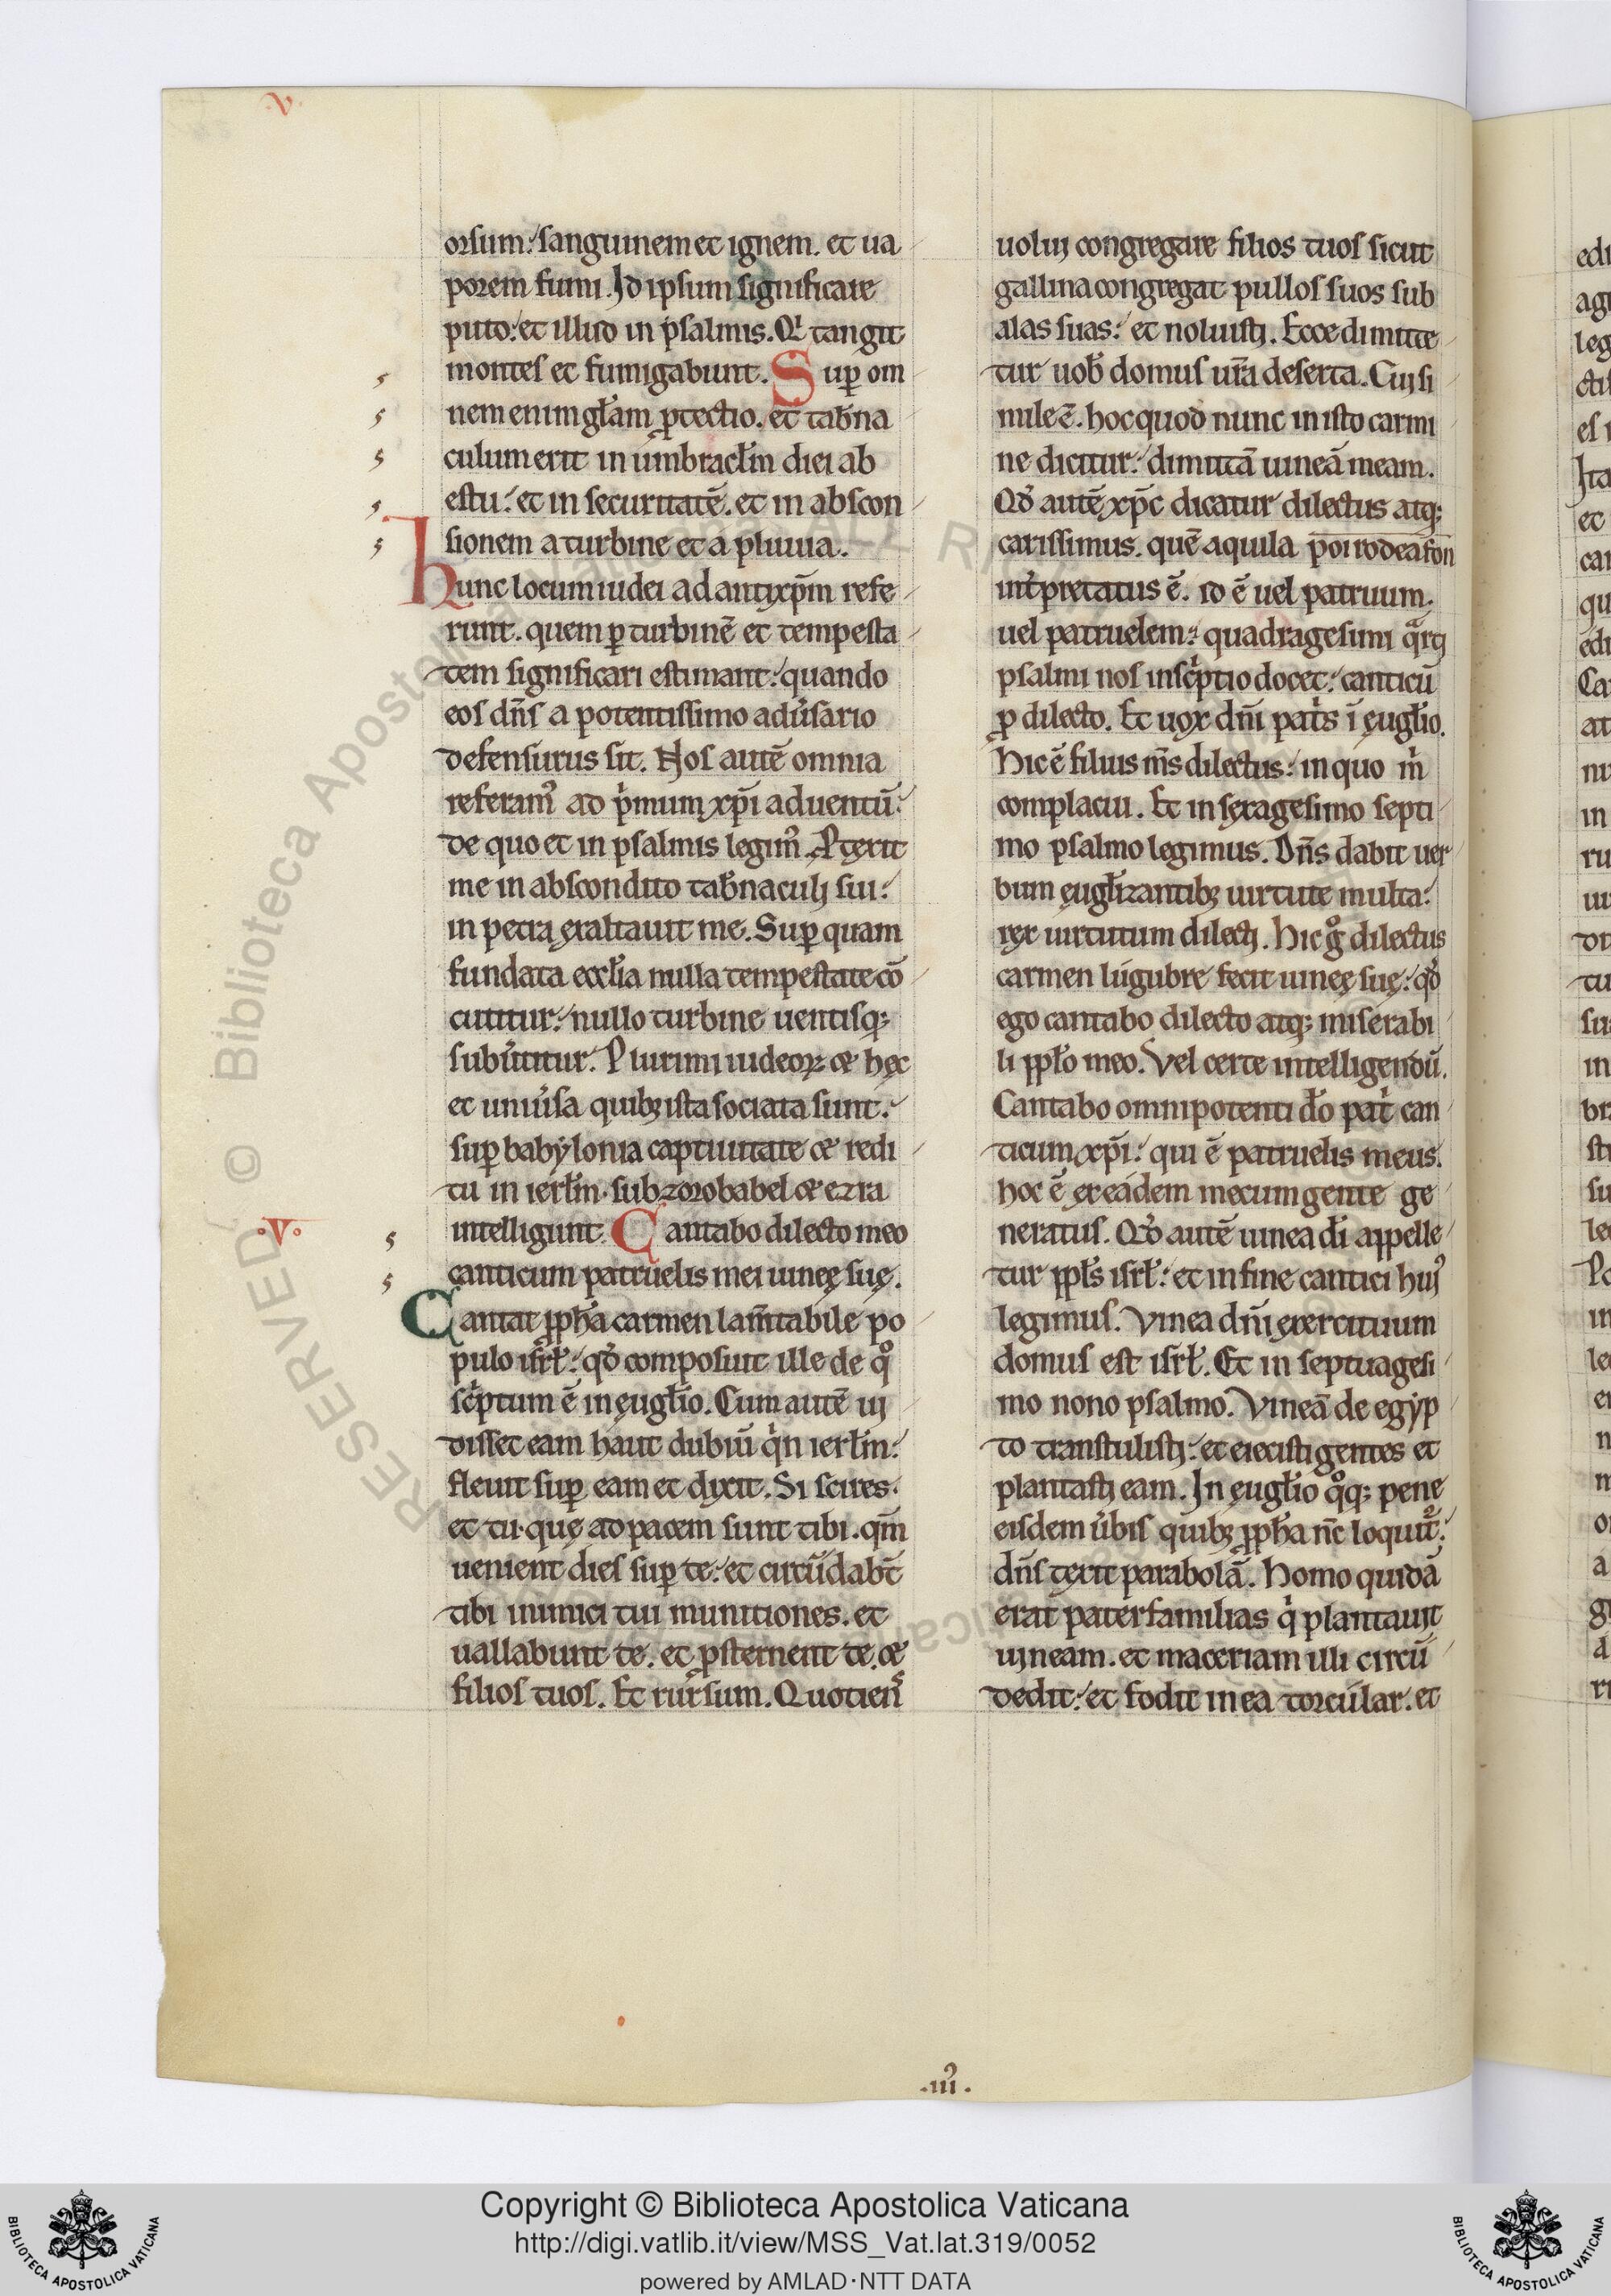 .v.
orsum: sanguinem et ignem. et ua
porem fumi. Id ipsum significare
puto: et illud in psalmis. Q tangit
montes et fumigabunt. Sup om
nem enim głam ptectio. et tab̄na
culum erit in umbracłm diei ab
estu: et in securitatē. et in abscon
sionem a turbine et a pluuia.
hunc locum iudei ad antixp̄m refe
runt. quem p turbinē et tempesta
tem significari estimant: quando
eos dn̄s a potentissimo adūsario
defensurus sit. Nos autē omnia
referam⁹ ad pͥmum xp̄i aduentū:
de quo et in psalmis legim⁹. Ptexit
me in abscondito tab̄naculi sui:
in petra exaltauit me. Sup quam
fundata eccłia nulla tempestate cō
cutitur: nullo turbine uentisq;
subūtitur. Plurimi iudeoꝝ & hęc
et uniūsa quibꝫ ista sociata sunt:
sup babylonia captiuitate & redi
tu in ierłm. sub zorobabel & ezra
.V.
intelligunt. Cantabo dilecto meo
canticum patruelis mei uineę suę.
Cantat ꝓpħa carmen lam̄tabile po
pulo isrł: qđ composuit ille de qͦ
scͥptum ē in eugłio. Cum autē ui
disset eam haut dubiū qͥn ierłm:
fleuit sup eam et dixit. Si scires.
et tu. quę ad pacem sunt tibi. qm̄
uenient dies sup te: et circūdabt̄
tibi inimici tui munitiones. et
uallabunt te. et ꝓsternent te. &
filios tuos. Et rursum. Quotiens
uolui congregare filios tuos sicut
gallina congregat pullos suos sub
alas suas: et noluisti. Ecce dimitte
tur uob̄ domus ur̄a deserta. Cui si
mile ē. hoc quod nunc in isto carmi
ne dicitur: dimittā uineā meam.
Qđ autē xp̄c dicatur dilectus atq;
carissimus. quē aquila
int̄pretatus ē. id ē uel patruum.
uel patruelem: quadragesimi qͣrti
psalmi nos inscͥptio docet: canticū
ꝓ dilecto. Et uox dn̄i patͥs ī eugłio.
Hic ē filius m̄s dilectus: in quo mͥ
complacui. Et in sexagesimo septi
mo psalmo legimus. Dn̄s dabit uer
bum eugłizantibꝫ uirtute multa:
rex uirtutum dilecti. Hic gͦ dilectus
carmen lugubre fecit uineę suę: qđ
ego cantabo dilecto atq; miserabi
li ppło meo. Vel certe intelligendū.
Cantabo omnipotenti dō patͥ can
ticum xp̄i: qui ē patruelis meus.
hoc ē ex eadem mecum gente ge
neratus. Qđ autē uinea dī appelle
tur ppłs isrł: et in fine cantici hui⁹
legimus. Vinea dn̄i exercituum
domus est isrł. Et in septuagesi
mo nono psalmo. Vineā de egyp
to transtulisti: et eiecisti gentes et
plantasti eam. In eugłio qͦq; pene
eisdem ūbis quibꝫ ꝓpħa nc̄ loquit᷑:
dn̄s texit parabolā. Homo quidā
erat paterfamilias qͥ plantauit
uineam. et maceriam illi circū
dedit: et fodit in ea torcular. et
.iii⁹.
Copyright © Biblioteca Apostolica Vaticana
http://digi.vatlib.it/view/MSS_Vat.lat.319/0052
powered by AMLAD·NTT DATA
BIBLIOTECA APOSTOLICA VATICANA
BIBLIOTECA APOSTOLICA VATICANA